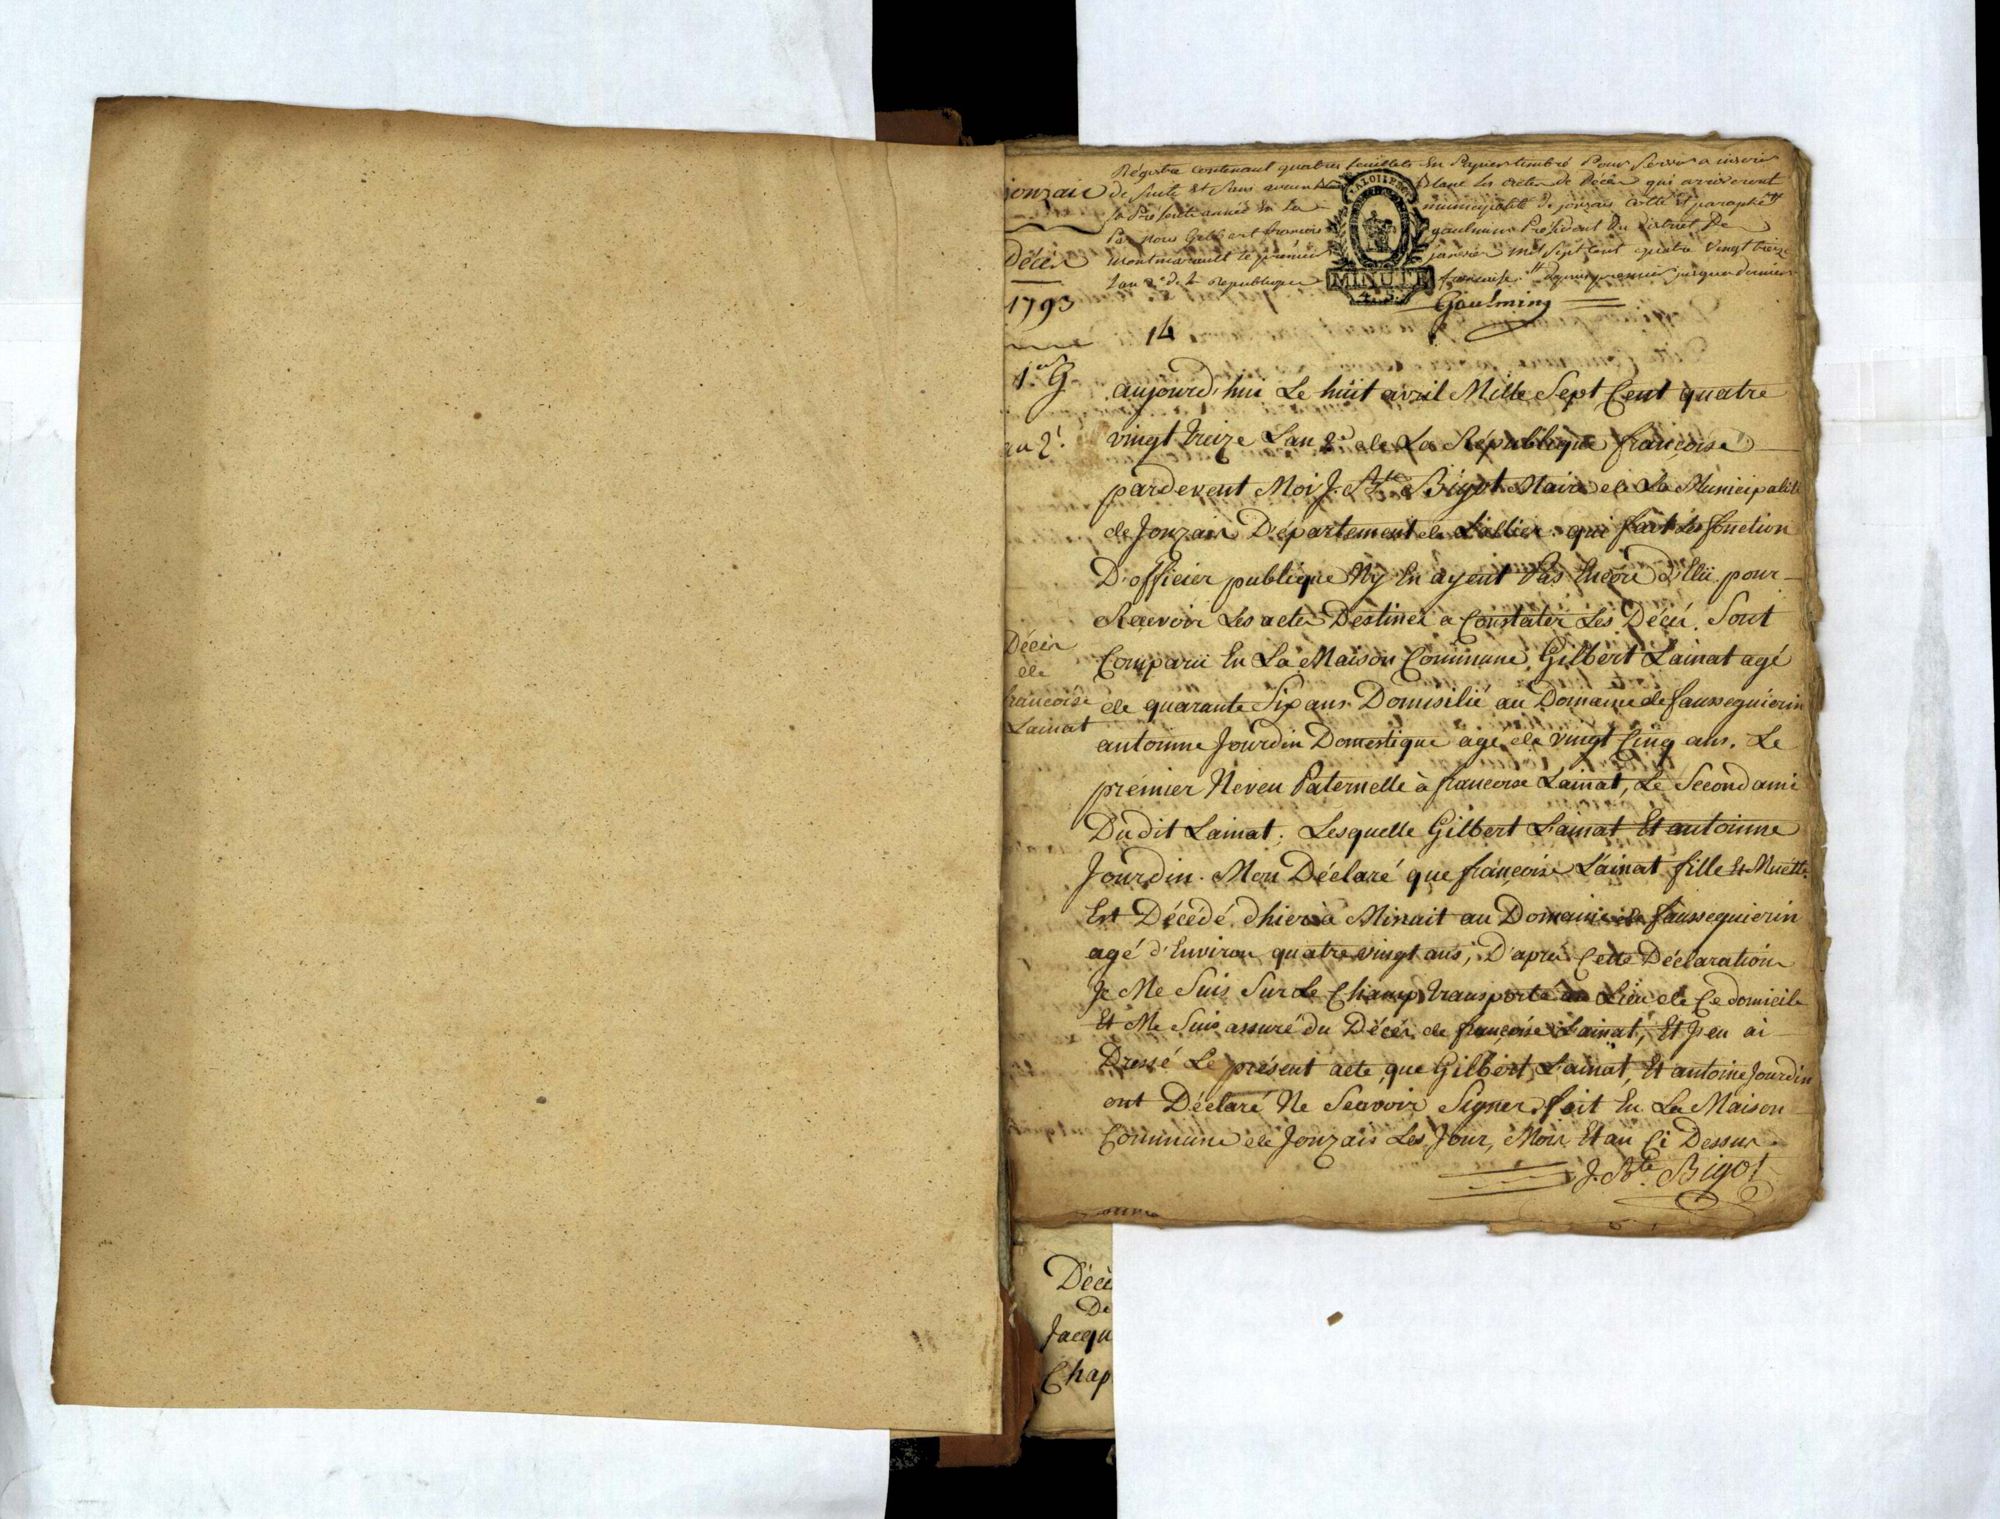 Régistre contenant quatres feuillets En Papier timbré Pour Servir a inscrir
de suite et Sans aucun Blanc Les actes de Décès qui ariveront
la Présente année En La municipalité de jonzais cotté et paraphé
Par Nous Gilbert francois gaulmin Président Du District De
Montmarault le prémier janvier mil sept cent quatre vingt treize
L'an 2e de la République francaise depuis premier jusqu'au dernier
Gaulmin
VALOIS
MINUTE
4. S.
jonzais
Décès
1793
14
1er G
au 2d.
aujourd'hui Le hüit avril Mille Sept Cent quatre
vingt treize L'an 2d de La République françoise
pardevent Moi J. Bte Bigot Maire de La Municipalité
de Jonzais Département de Lallier. qui fait Les fonction
D'officier publique N'y En ayent Pas Encore d'Elü pour
Recevoir Les actes Destinez a Constater Les Décès. Sont
Comparü En La Maison Commune, Gilbert Lainat agé
de quarante Six ans Domisilié au Domaine de fausseguierin
antoinne Jourdin Domestique age de vingt Cinq ans. Le
prémier Neveu Paternelle à francoise Lainat, Le Second ami
Dudit Lainat. Lesquelle Gilbert Lainat Et antoinne
Jourdin. M'on Déclaré que françoise Lainat fille Et Muette
Est Décédé d'hier à Minuit au Domaine de fausseguierin
agé d'Environ quatre vingt ans, D'aprés Cette Déclaration
Je Me Suis Sur Le Champ transporté au Lieu de Ce domicile
Et Me Suis assuré du Décés de françoise Lainat, Et J'en ai
Dressé Le présent acte que Gilbert Lainat, Et antoine Jourdin
ont Déclaré Ne Scavoir Signer. fait En La Maison
Commune de Jonzais Les Jour, Mois Et an Ci Dessus.
J. Bte Bigot
Décès
de
francoise
Lainat
Décè
De
Jacqu
Chap